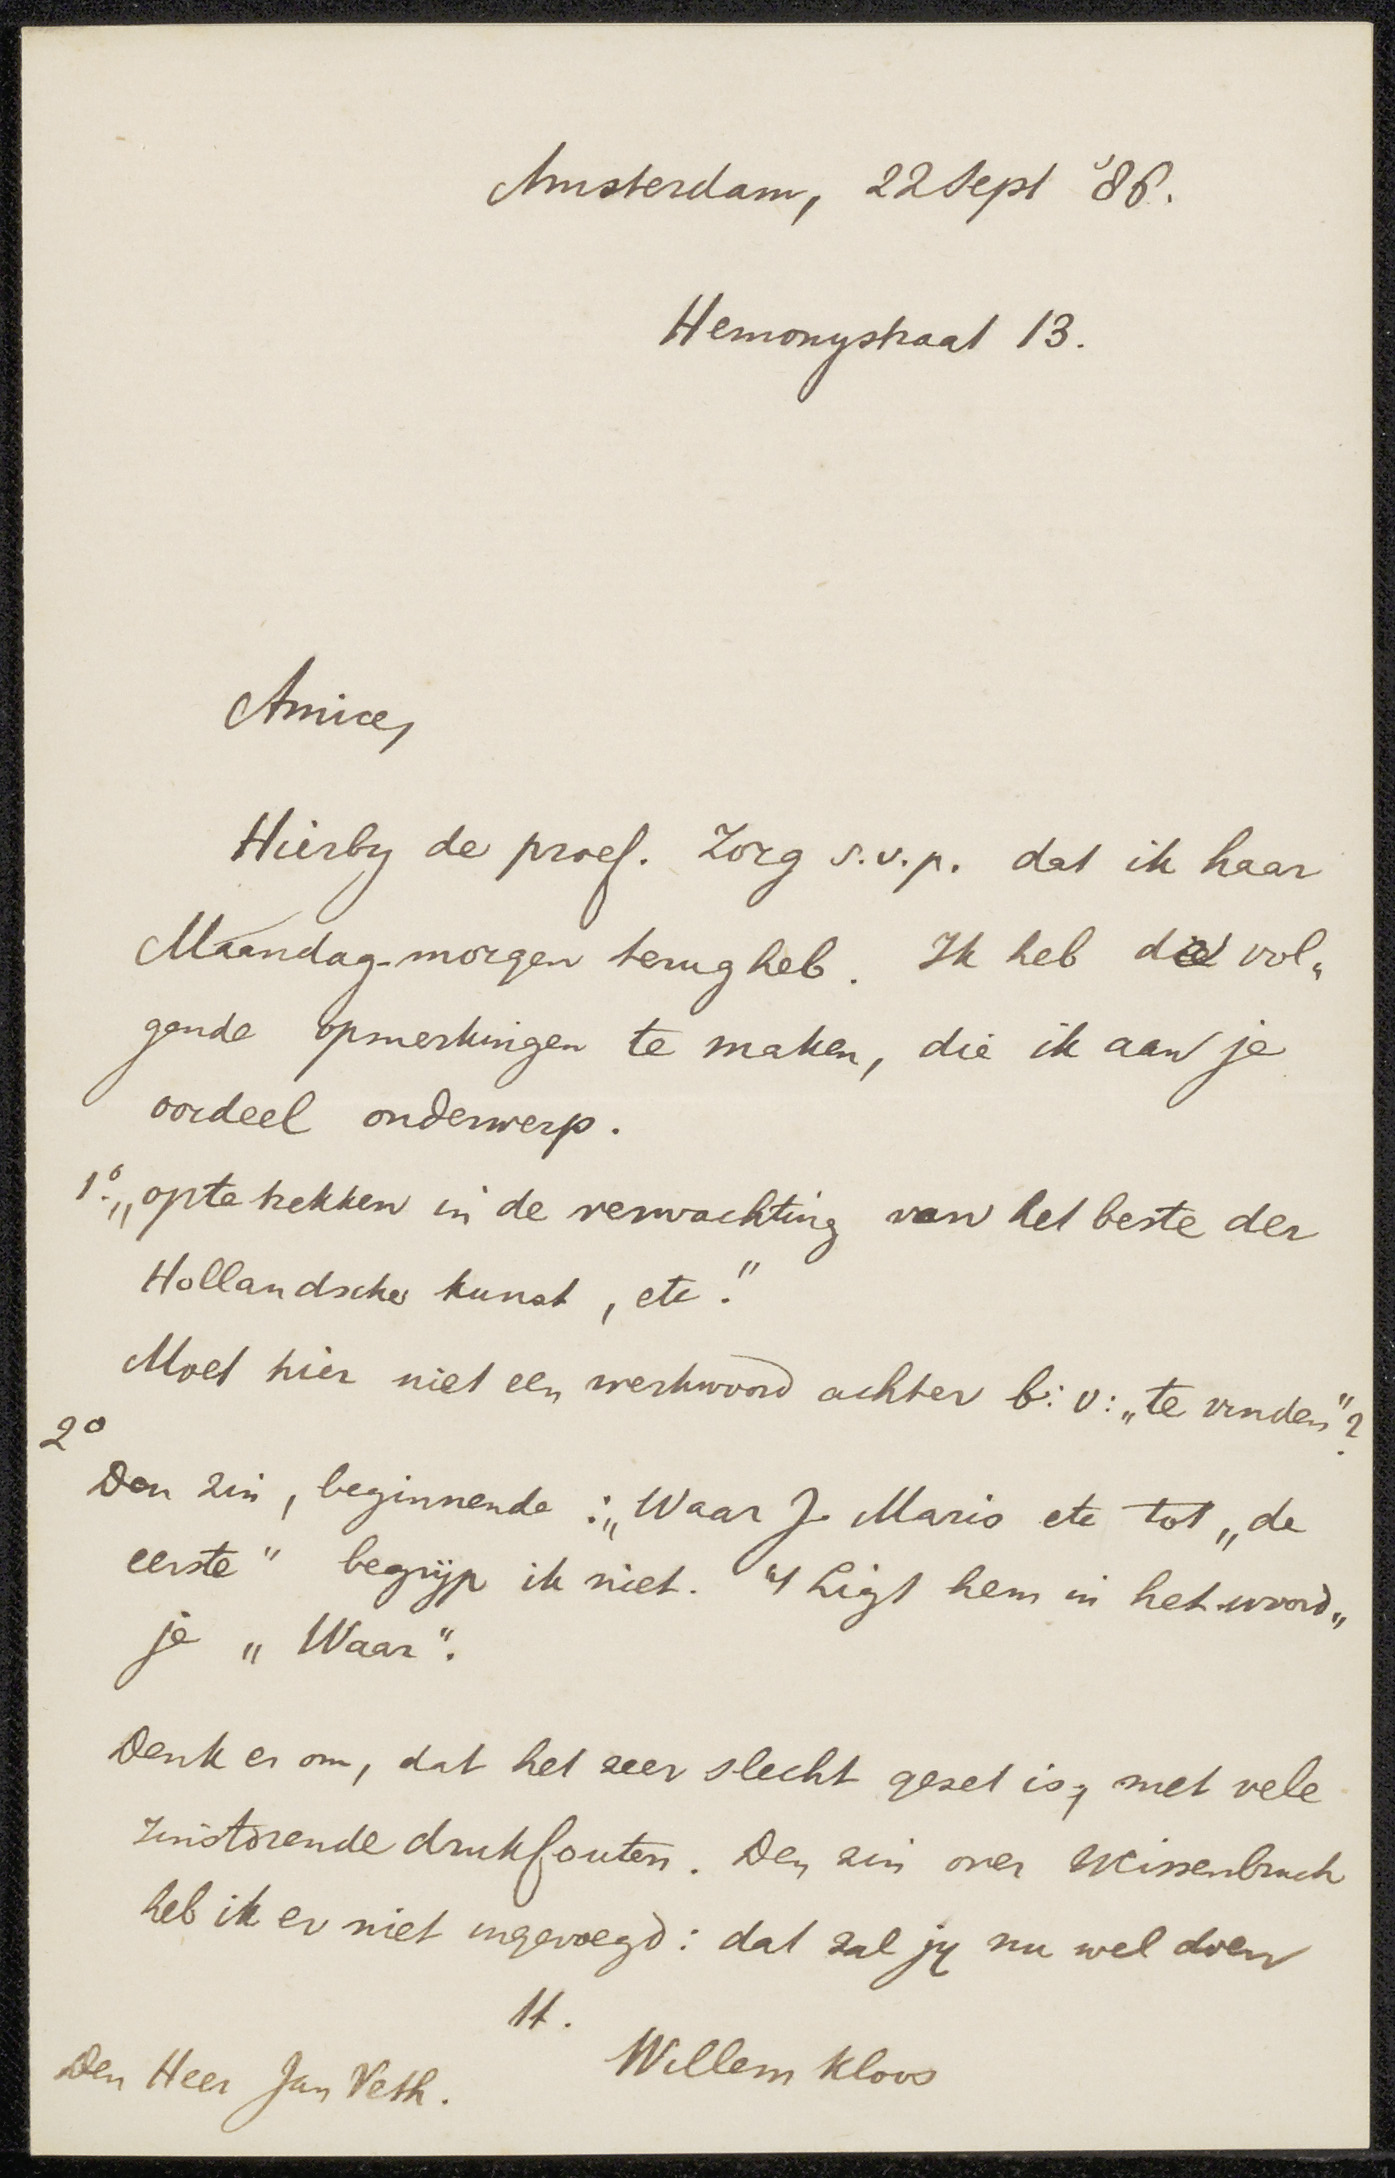 Amsterdam, 22 Sept '86.
Hemonystraat 13.
Amice,
Hierby de proef. Zorg s.v.p. dat ik haar
Maandag-morgen terug heb. Ik heb de vol„
gende opmerkingen te maken, die ik aan je
oordeel onderwerp.
1.o „op te trekken in de verwachting van het beste der
Hollandsche kunst, etc."
Moet hier niet een werkwoord achter b:v: „te vinden"?
2o
Den zin, beginnende: „Waar J. Maris etc tot „de
eerste" begrijp ik niet. 't Ligt hem in het woord„
je „Waar".
Denk er om, dat het zeer slecht gezet is, met vele
zinstorende drukfouten. Den zin over Weissenbruch
heb ik er niet ingevoegd: dat zal jy nu wel doen
tt.
Willem Kloos
Den Heer Jan Veth.